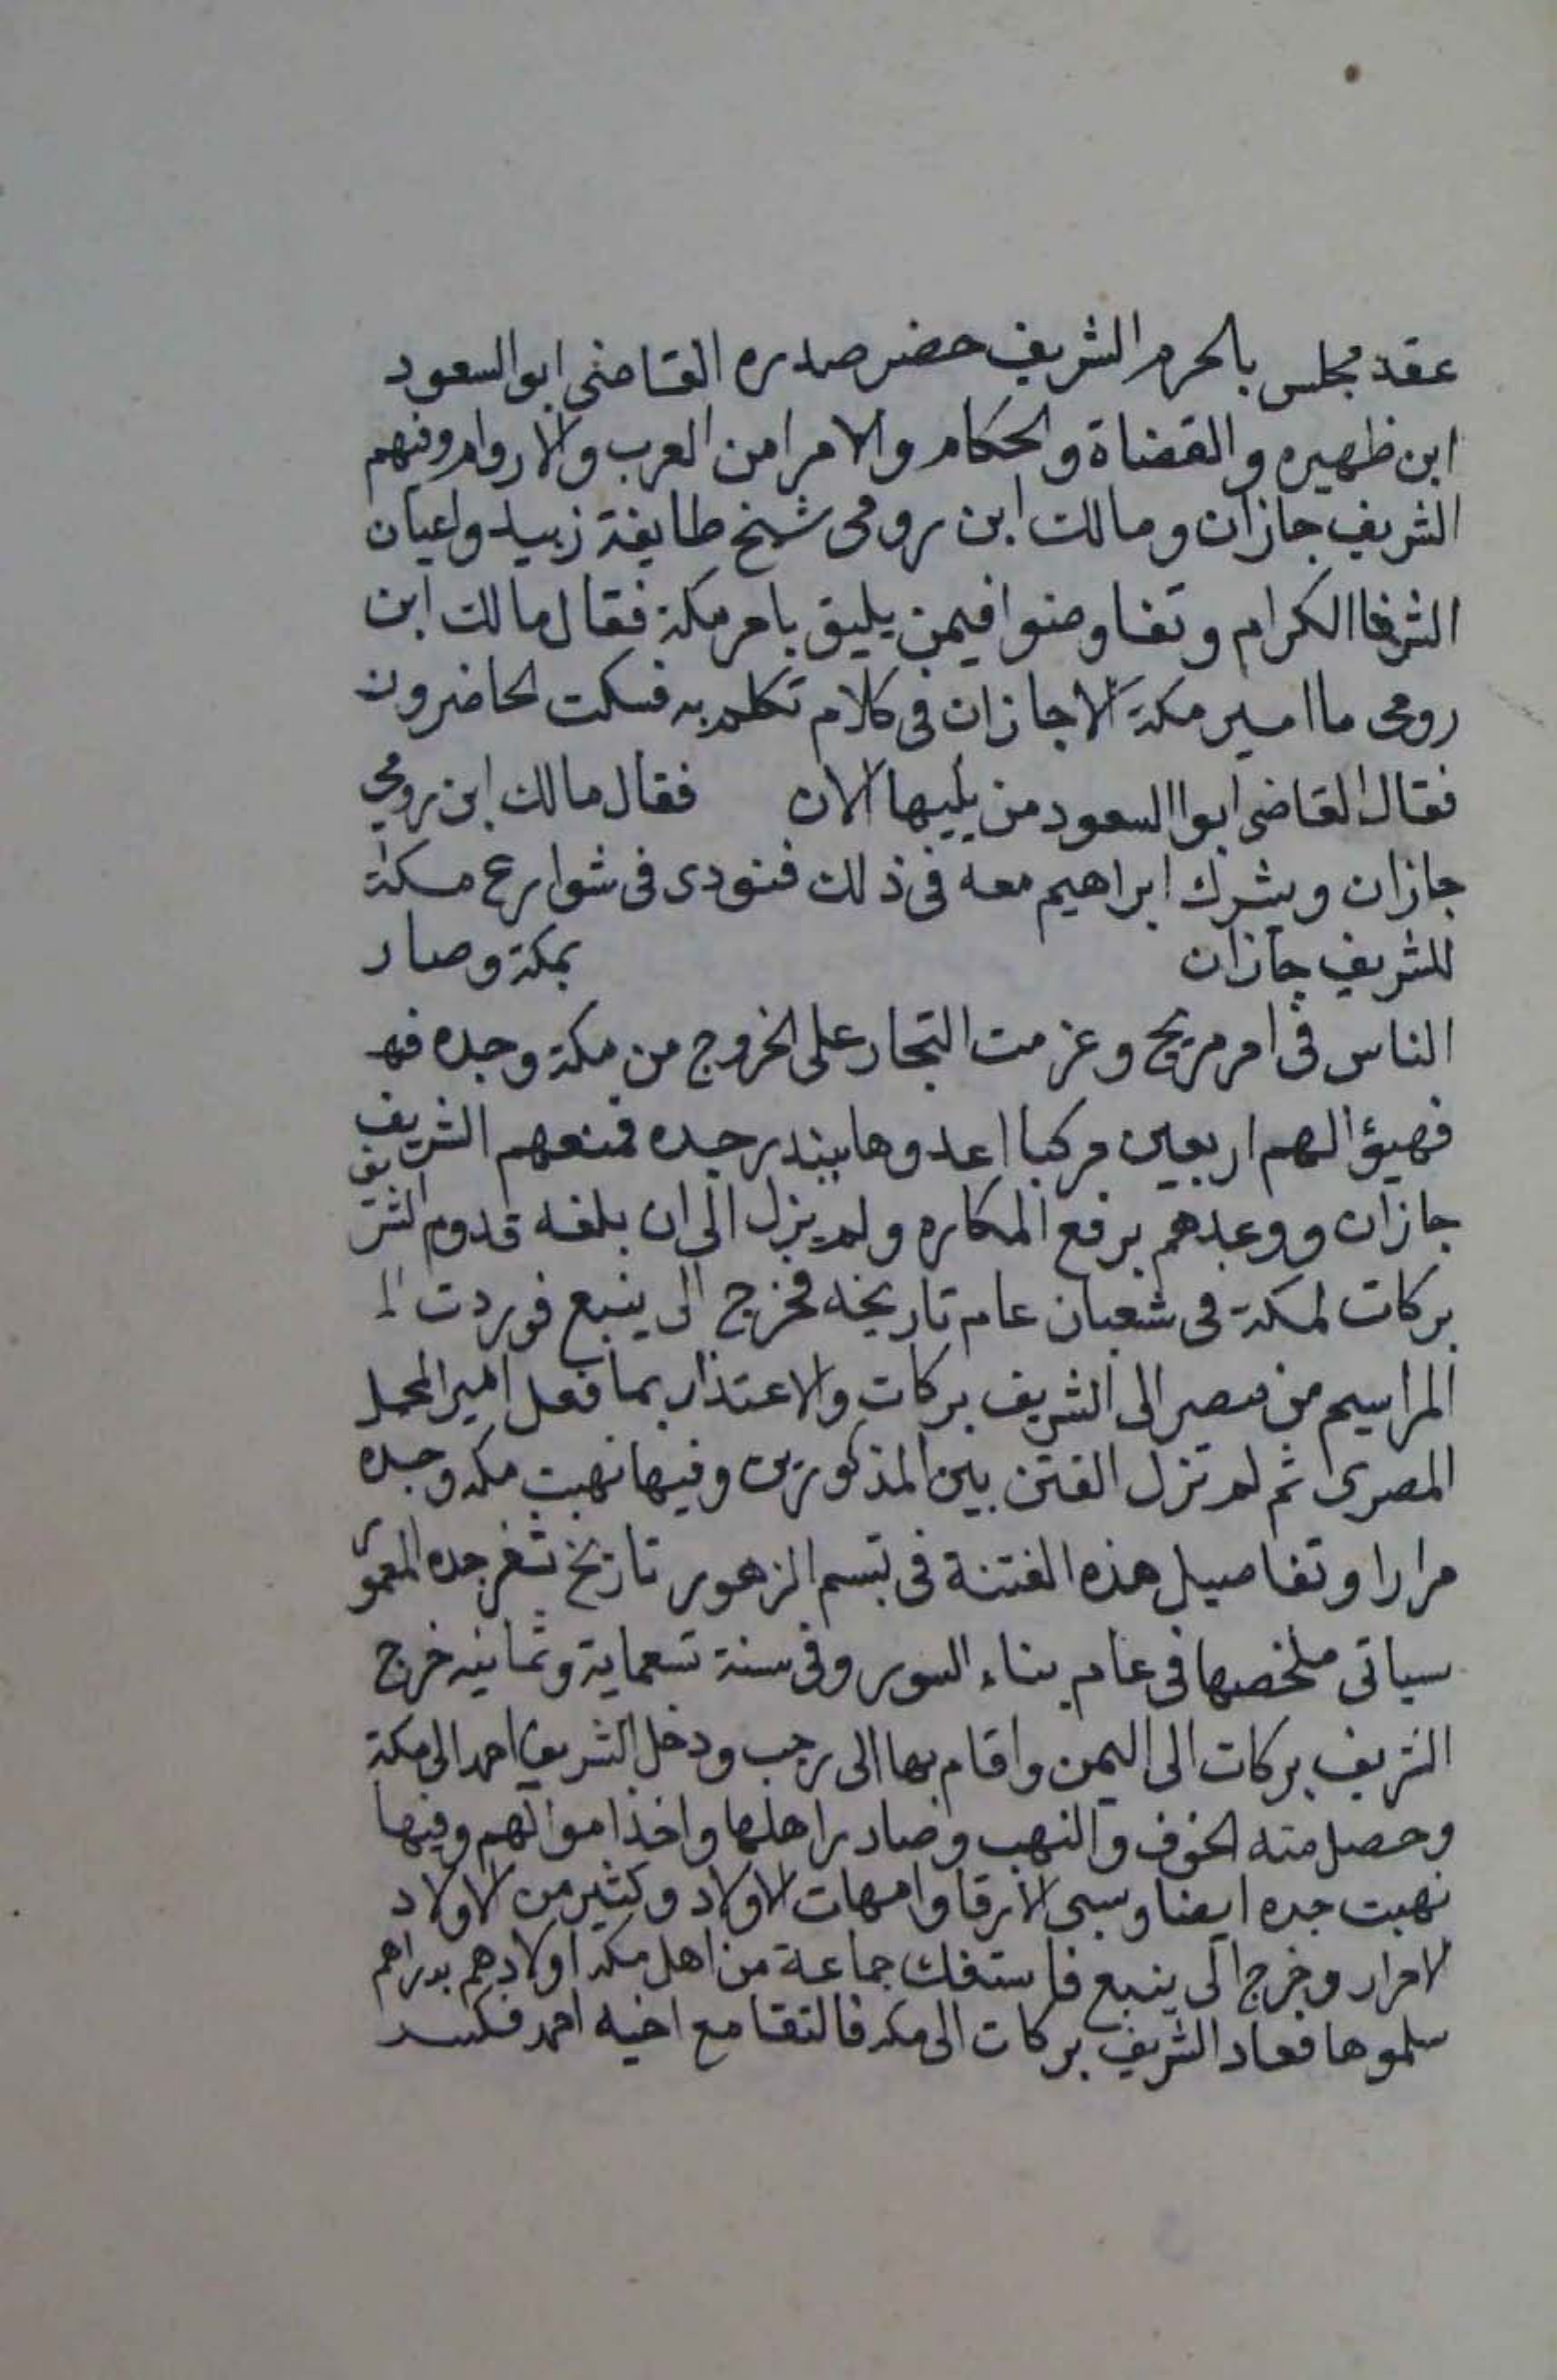 عقد مجلس بالحرم الشريف حضر صدره القاضى ابو السعود
ابن ظهيره والقضاة والحكام والامرا من العرب والاروام وفيهم
الشريف جازان ومالك ابن رومى شيخ طايفة زبيد واعيان
الشرفا الكرام وتفاوضوا فيمن يليق بامر مكة فقال مالك ابن
رومى ما امير مكة الا جازان فى كلام تكلم به فسكت الحاضرون
فقال القاضى ابوا السعود من يليها الان فقال مالك ابن رومي
جازان ويشرك ابراهيم معه فى ذلك فنودى فى شوارع مكة
للشريف جازان بمكة وصار
الناس فى امر مريج وعزمت التجار على الخروج من مكة وجده فه
فهيؤ الهم اربعين مركبا اعدوها ببندر جده فمنعهم الشريف
جازان ووعدهم برفع المكاره ولم يزل الى ان بلغه قدوم الشريف
بركات لمكة فى شعبان عام تاريخه فخرج الى ينبع فوردت الم
المراسيم من مصر الى الشريف بركات والاعتذار بما فعل امير المحمل
المصرى ثم لم تزل الفتن بين المذكورين وفيها نهبت مكه وجده
مرارا وتفاصيل هذه الفتنة فى تبسم الزهور تاريخ ثغر جده المعمور
سياتى ملخصها فى عام بناء السور وفى سنة تسعماية وثمانيه خرج
الشريف بركات الى اليمن واقام بها الى رجب ودخل الشريف احمد الى مكة
وحصل منه الخوف والنهب وصادر اهلها واخذ اموالهم وفيها
نهبت جده ايضا وسبى الارقا وامهات الاولاد وكثير من الاولاد
لاحرار وخرج الى ينبع فاستفك جماعة من اهل مكه اولادهم بدراهم
سلموها فعاد الشريف بركات الى مكه فالتقا مع اخيه احمد فكسر